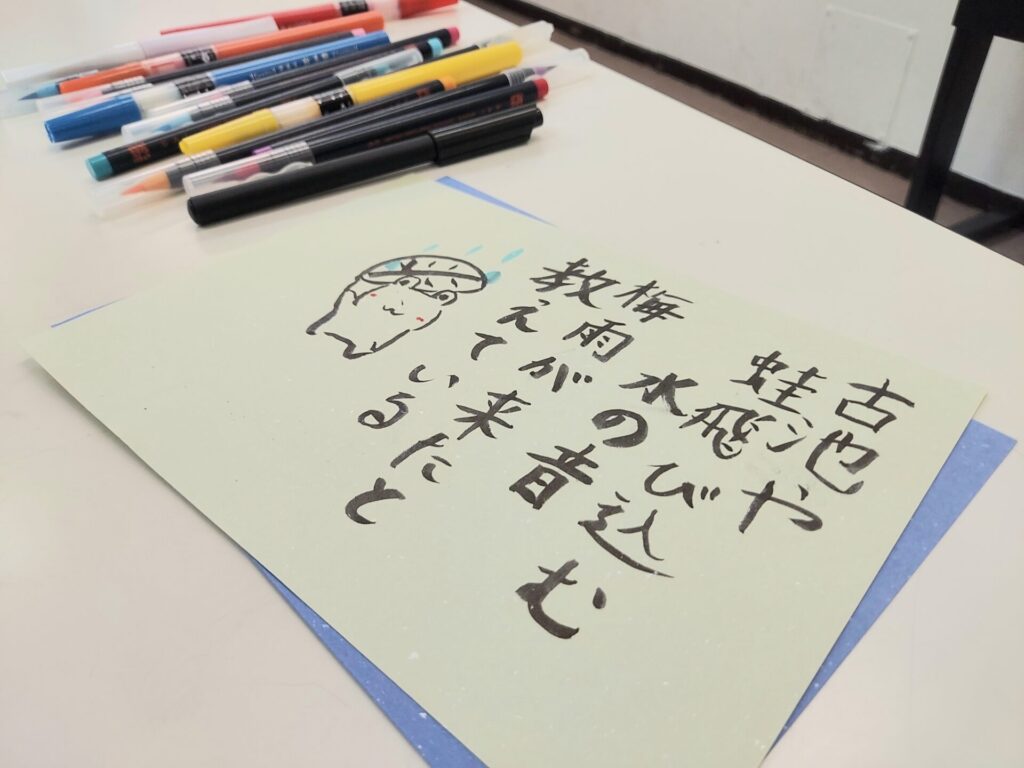 古池や
蛙飛び込む
水の音
梅雨が来たと
教えている